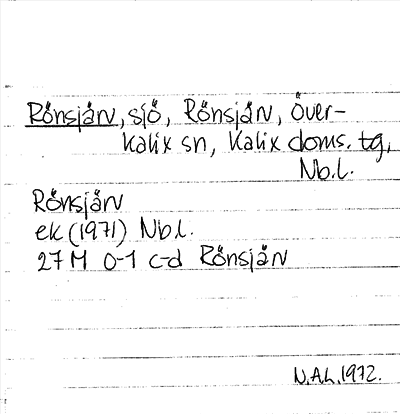 Rönsjärv, sjö, Rönsjärv, Över-
kalix sn, Kalix doms. tg,
Nb.l.
Rönsjärv
ek (1971) Nb.l.
27 M 0-1 c-d Rönsjärv
N.Ah. 1972.